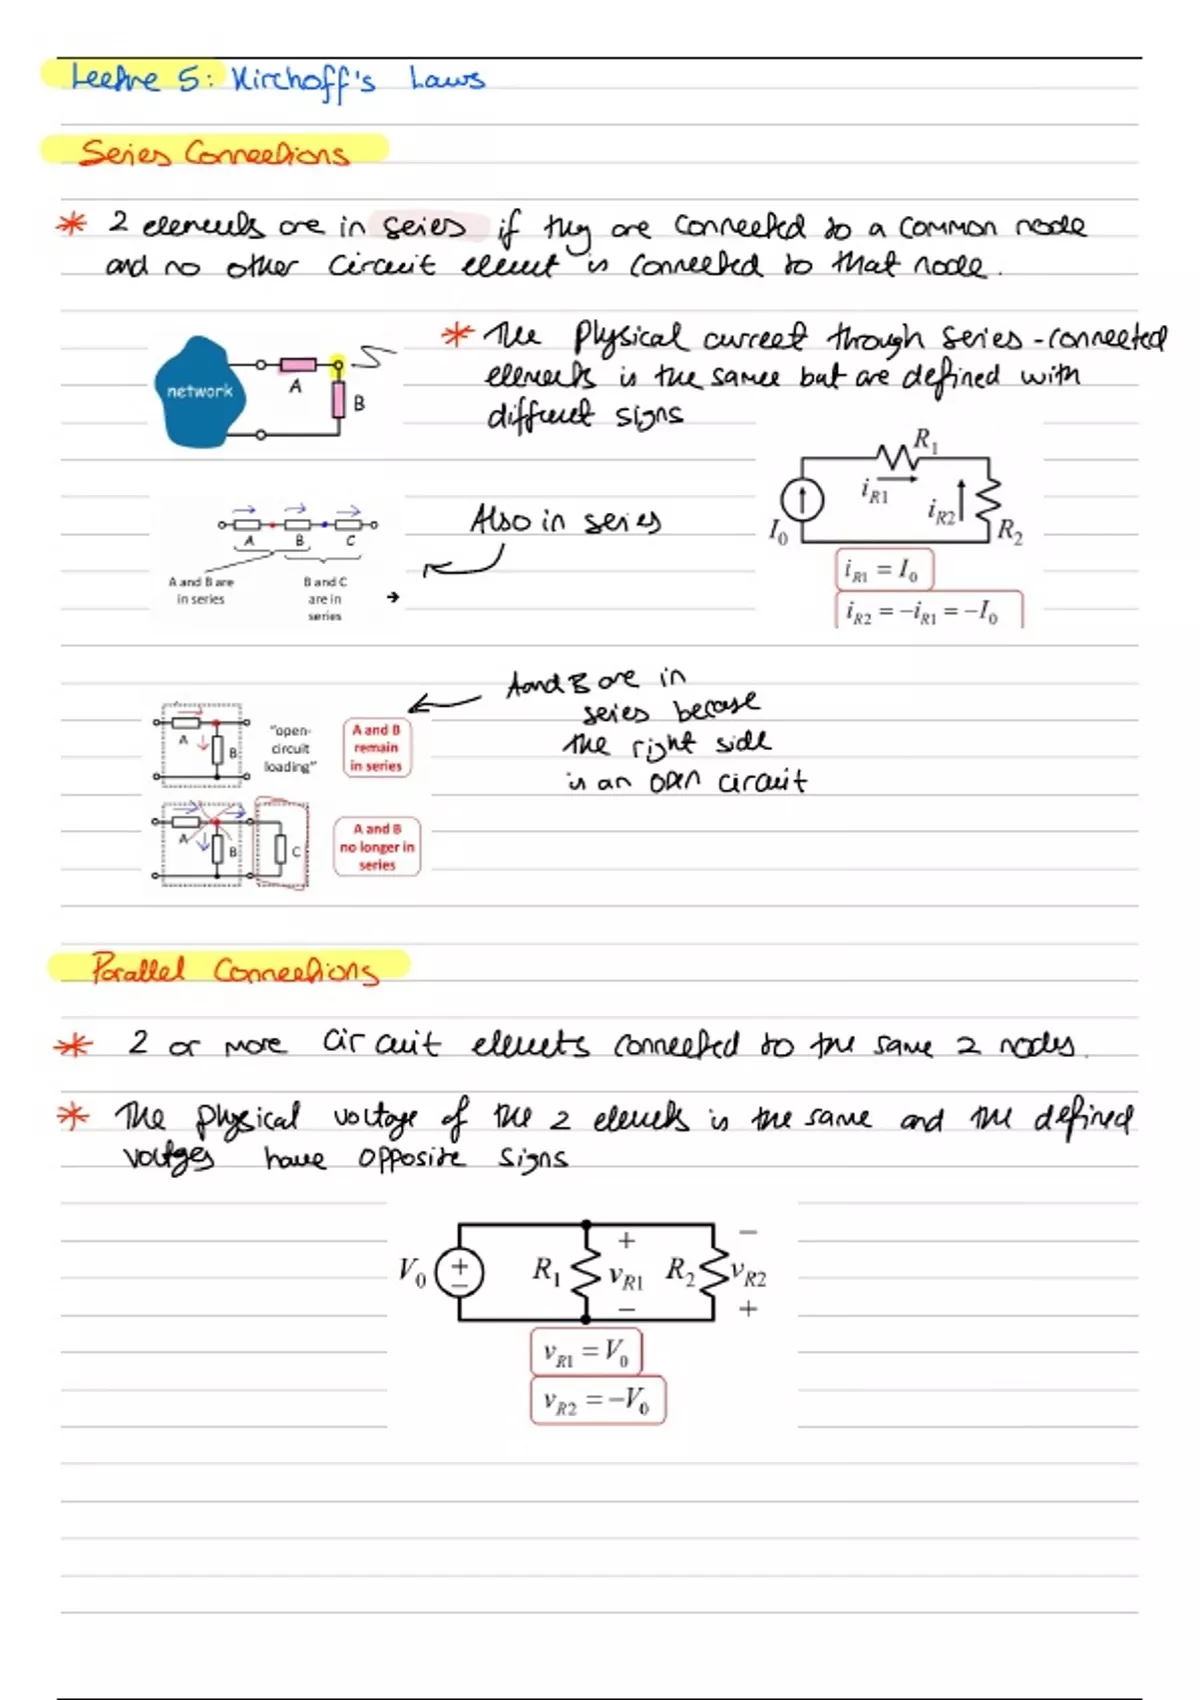 Lecture 5: Kirchoff's Laws
Series Connections
* 2 elements are in series if they are connected to a common node
and no other circuit element is connected to that node.
* The physical current through series-connected
elements is the same but are defined with
different signs
network
A
B
R1
iR1
iR2
I0
R2
iR1 = I0
iR2 = −iR1 = −I0
Also in series
A B C
A and B are
in series
B and C
are in
series
A and B are in
series because
the right side
is an open circuit
A
B
"open-
circuit
loading"
A and B
remain
in series
A
B
C
A and B
no longer in
series
Parallel Connections
* 2 or more circuit elements connected to the same 2 nodes.
* The physical voltage of the 2 elements is the same and the defined
voltges have opposite signs
V0
+
−
R1
+
vR1
−
R2
−
vR2
+
vR1 = V0
vR2 = −V0